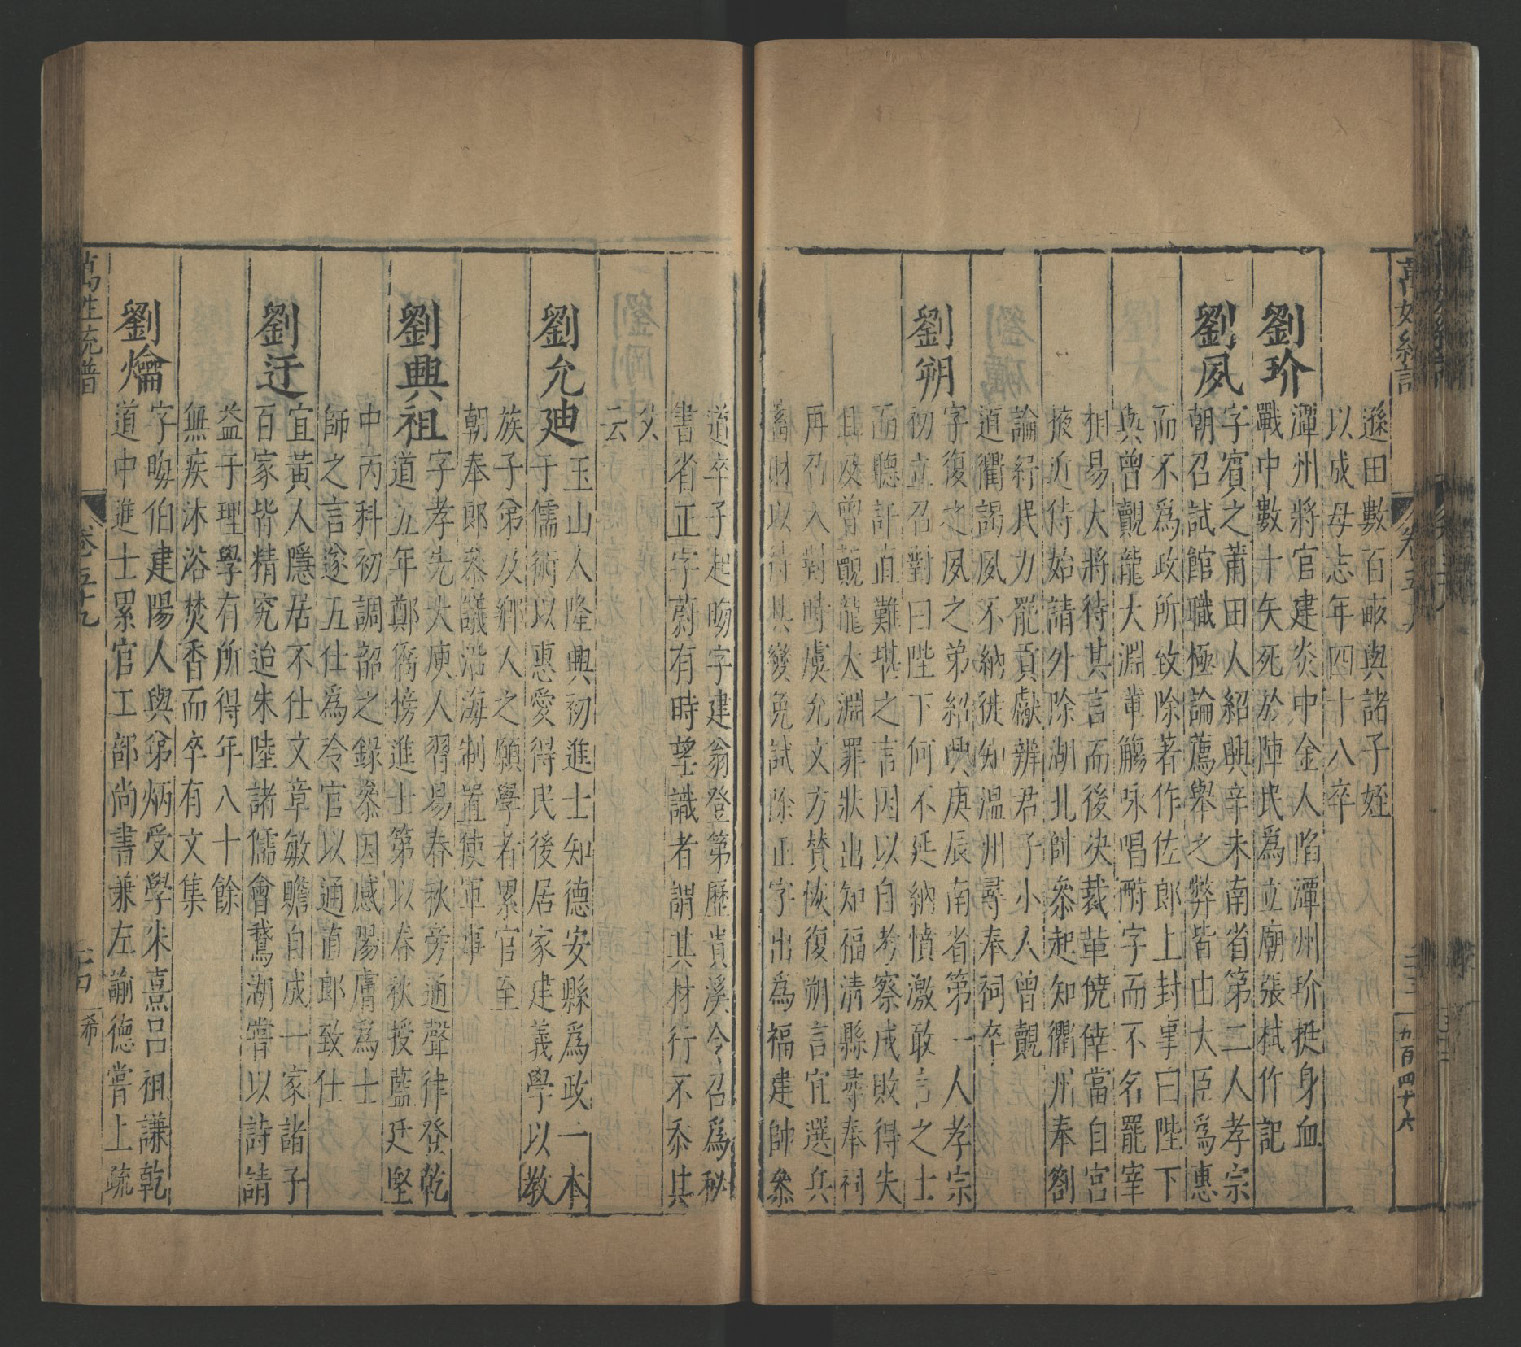 遜田數百畝與諸子姪
以成母志年四十八卒
劉玠
潭州將官建炎中金人陷潭州玠挺身血
戰中數十矢死於陣民爲立廟張栻作記
劉夙
字賓之莆田人紹興辛未南省第二人孝宗
朝召試館職極論薦舉之弊皆由大臣爲惠
而不爲政所致除著作佐郎上封事曰陛下
與曾覿龍大淵軰觴咏唱酧字而不名罷宰
相易大將待其言而後决裁革僥倖當自宮
掖近侍始請外除湖北帥叅起知衢州奉劄
論紓民力罷貢獻辨君子小人曾覿
道衢謁夙不納徙知溫州尋奉祠卒
劉朔
字復之夙之弟紹興庚辰南省第一人孝宗
初立召對曰陛下何不延納憤激敢言之士
面聽訐直難堪之言因以自考察成敗得失
曾覿龍大淵罪狀出知福清縣尋奉祠
再召入對時虞允文方賛恢復朔言宜選兵
蓄財以待其變免試除正字出爲福建帥叅
道卒子起晦字建翁登第歷貴溪令召爲秘
書省正字蔚有時望識者謂其材行不忝其
父
云
劉允迪
玉山人隆興初進士知德安縣爲政一本
于儒術以惠愛得民後居家建義學以教
族子弟及鄉人之願學者累官至
朝奉郎叅議沿海制置使軍事
劉興祖
字孝先大庾人習易春秋旁通聲律登乾
道五年鄭僑榜進士第以春秋授藍廷堅
中丙科初調韶之錄叅因感陽膚爲士
師之言遂五仕爲令官以通直郎致仕
劉迂
宜黃人隱居不仕文章敏贍自成一家諸子
百家皆精究造朱陸諸儒會鵞湖嘗以詩請
益于理學有所得年八十餘
無疾沐浴焚香而卒有文集
劉爚
字晦伯建陽人與弟炳受學朱熹呂祖謙乾
道中進士累官工部尚書兼左諭德嘗上疏
萬姓統譜
卷五十九